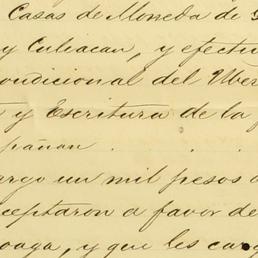 Casas de Moneda de G
y Culiacan, y efectu
ondicional del Uber
y Escritura de la f
pañan . . . .
argo un mil pesos a
ceptaron a favor de
oaga, y que les carg